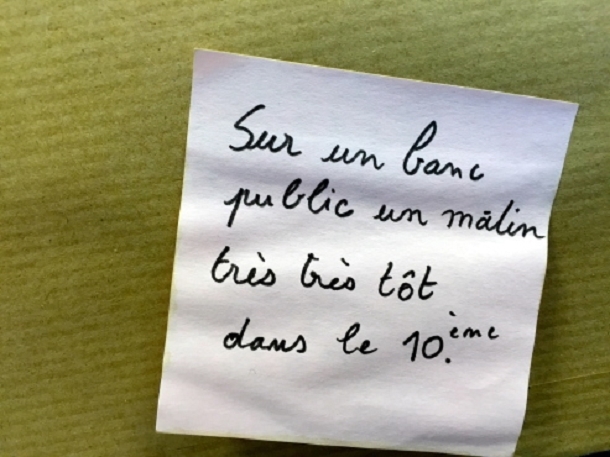 Sur un banc
public un matin
très très tôt
dans le 10.ème